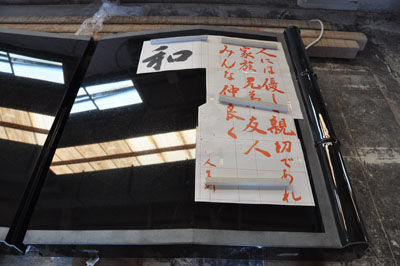 人には優しく親切であれ
家族、兄弟、友人
みんな仲良く
和